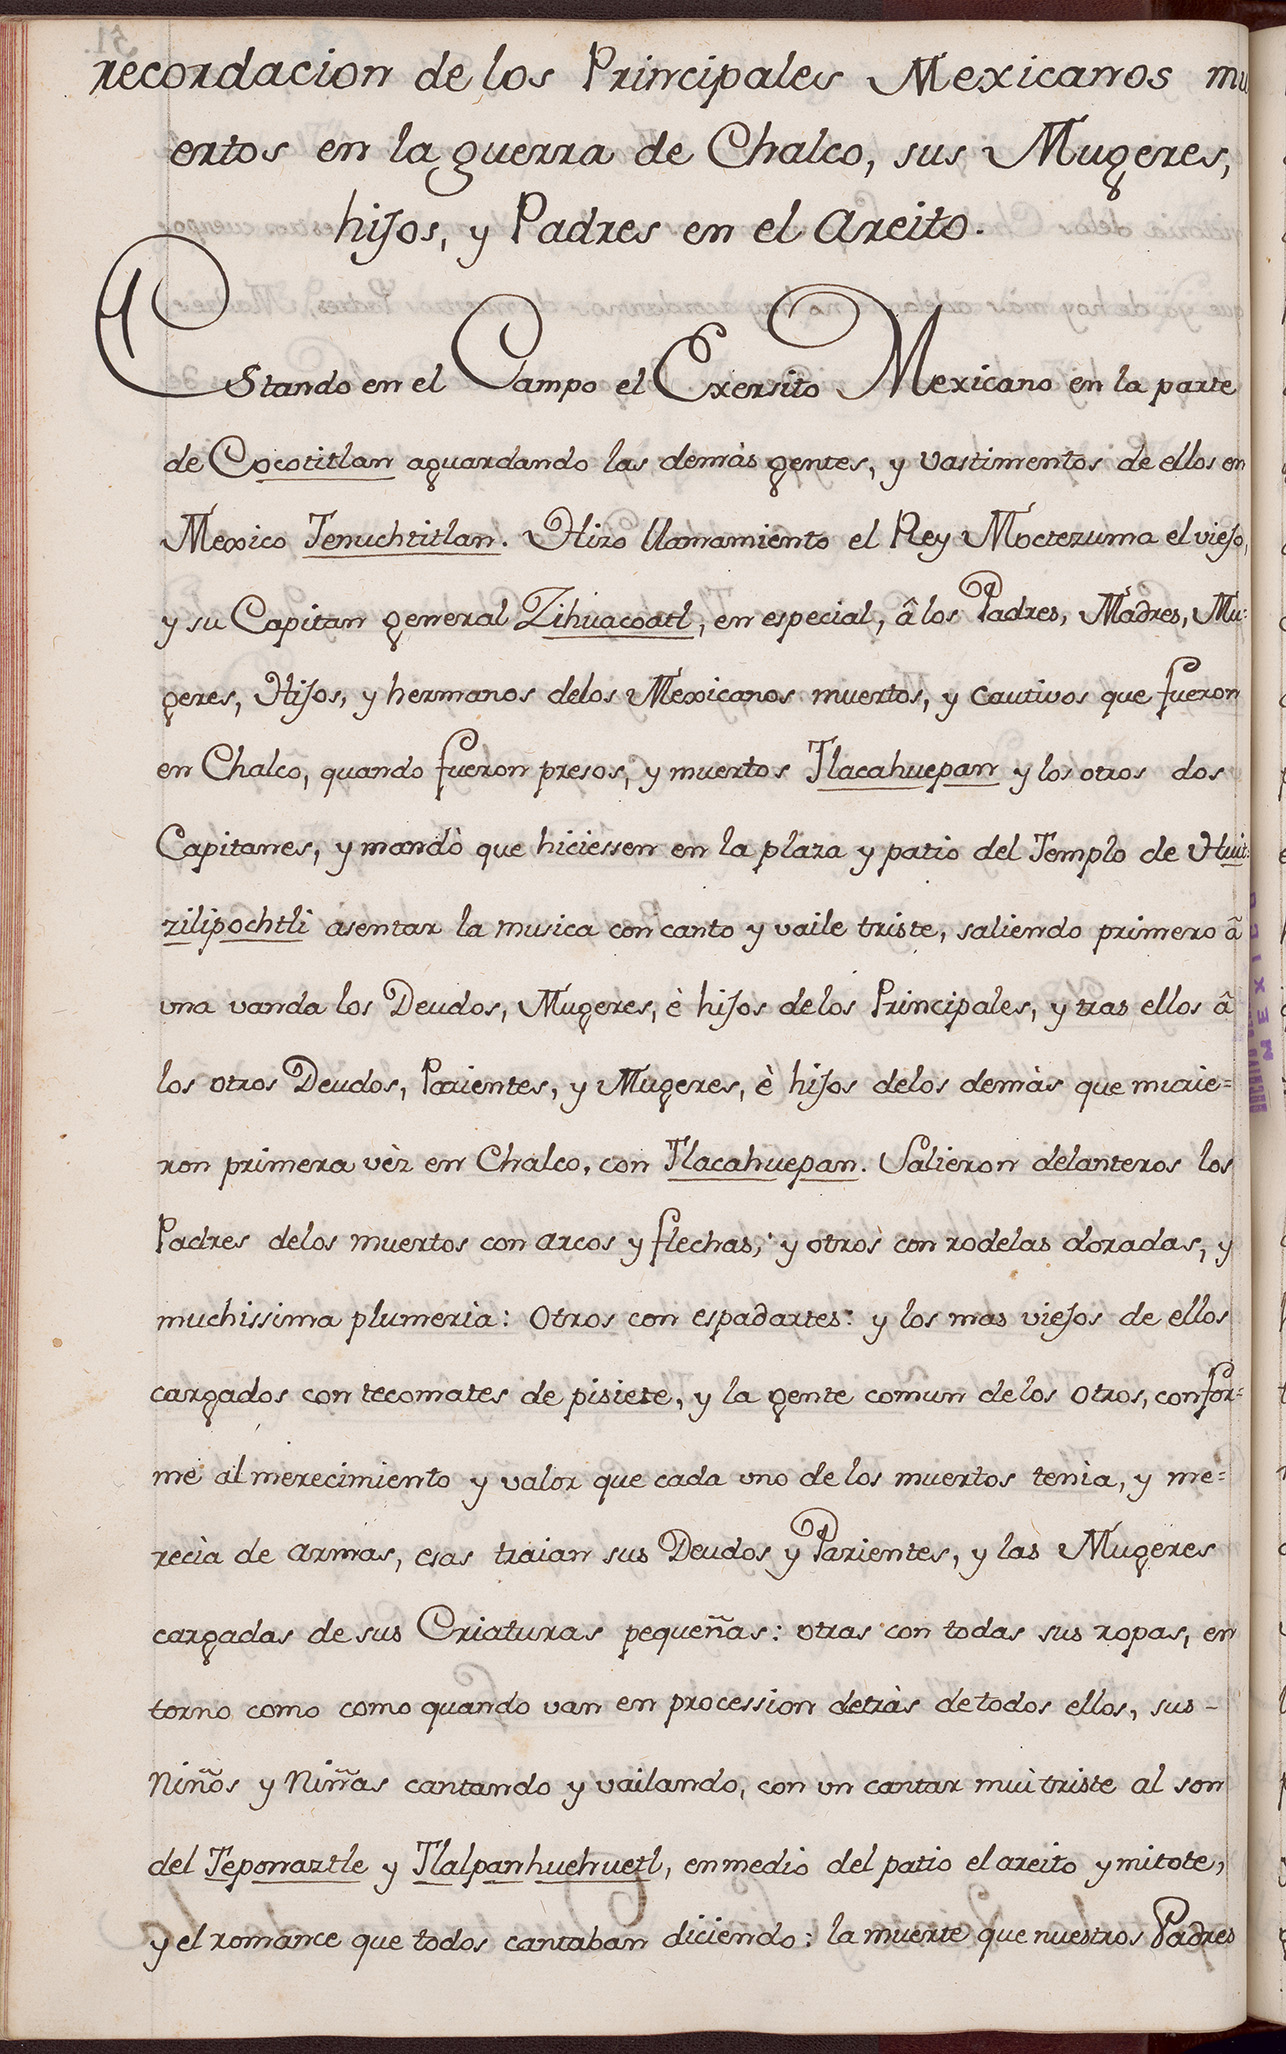 recordacion de los Principales Mexicanos mu
ertos en la guerra de Chalco, sus Mugeres,
hijos, y Padres en el areito.
EStando en el Campo el Exersito Mexicano en la parte
de Cocotitlan aguardando las demàs gentes, y vastimentos de ellos en
Mexico Tenuchtitlan. Hizo llamamiento el Rey Moctezuma el viejo,
y su Capitan general Zihuacoatl, en especial, â los Padres, Madres, Mu:
geres, Hijos, y hermanos delos Mexicanos muertos, y cautivos que fueron
en Chalco, quando fueron presos, y muertos Tlacahuepan y los otros dos
Capitanes, y mandò que hiciessen en la plaza y patio del Templo de Huit:
zilipochtli asentar la musica con canto y vaile triste, saliendo primero â
vna vanda los Deudos, Mugeres, è hijos delos Principales, y tras ellos â
los otros Deudos, Parientes, y Mugeres, è hijos delos demàs que murie=
ron primera vèz en Chalco, con Tlacahuepan. Salieron delanteros los
Padres delos muertos con arcos y flechas, y otros con rodelas doradas, y
muchissima plumerìa: Otros con espadartes: y los mas viejos de ellos
cargados con tecomates de pisiete, y la gente comun delos otros, confor=
me al merecimiento y valor que cada vno de los muertos tenìa, y me=
recìa de armas, esas traian sus Deudos y Parientes, y las Mugeres
cargadas de sus Criaturas pequeñas: otras con todas sus ropas, en
torno como como quando van en procession detràs de todos ellos, sus-
Niños y Niñas cantando y vailando, con vn cantar mui triste al son
del Teponaztle y Tlalpanhuehuetl, en medio del patio el areito y mitote,
y el romance que todos cantaban diciendo: la muerte que nuestros Padres